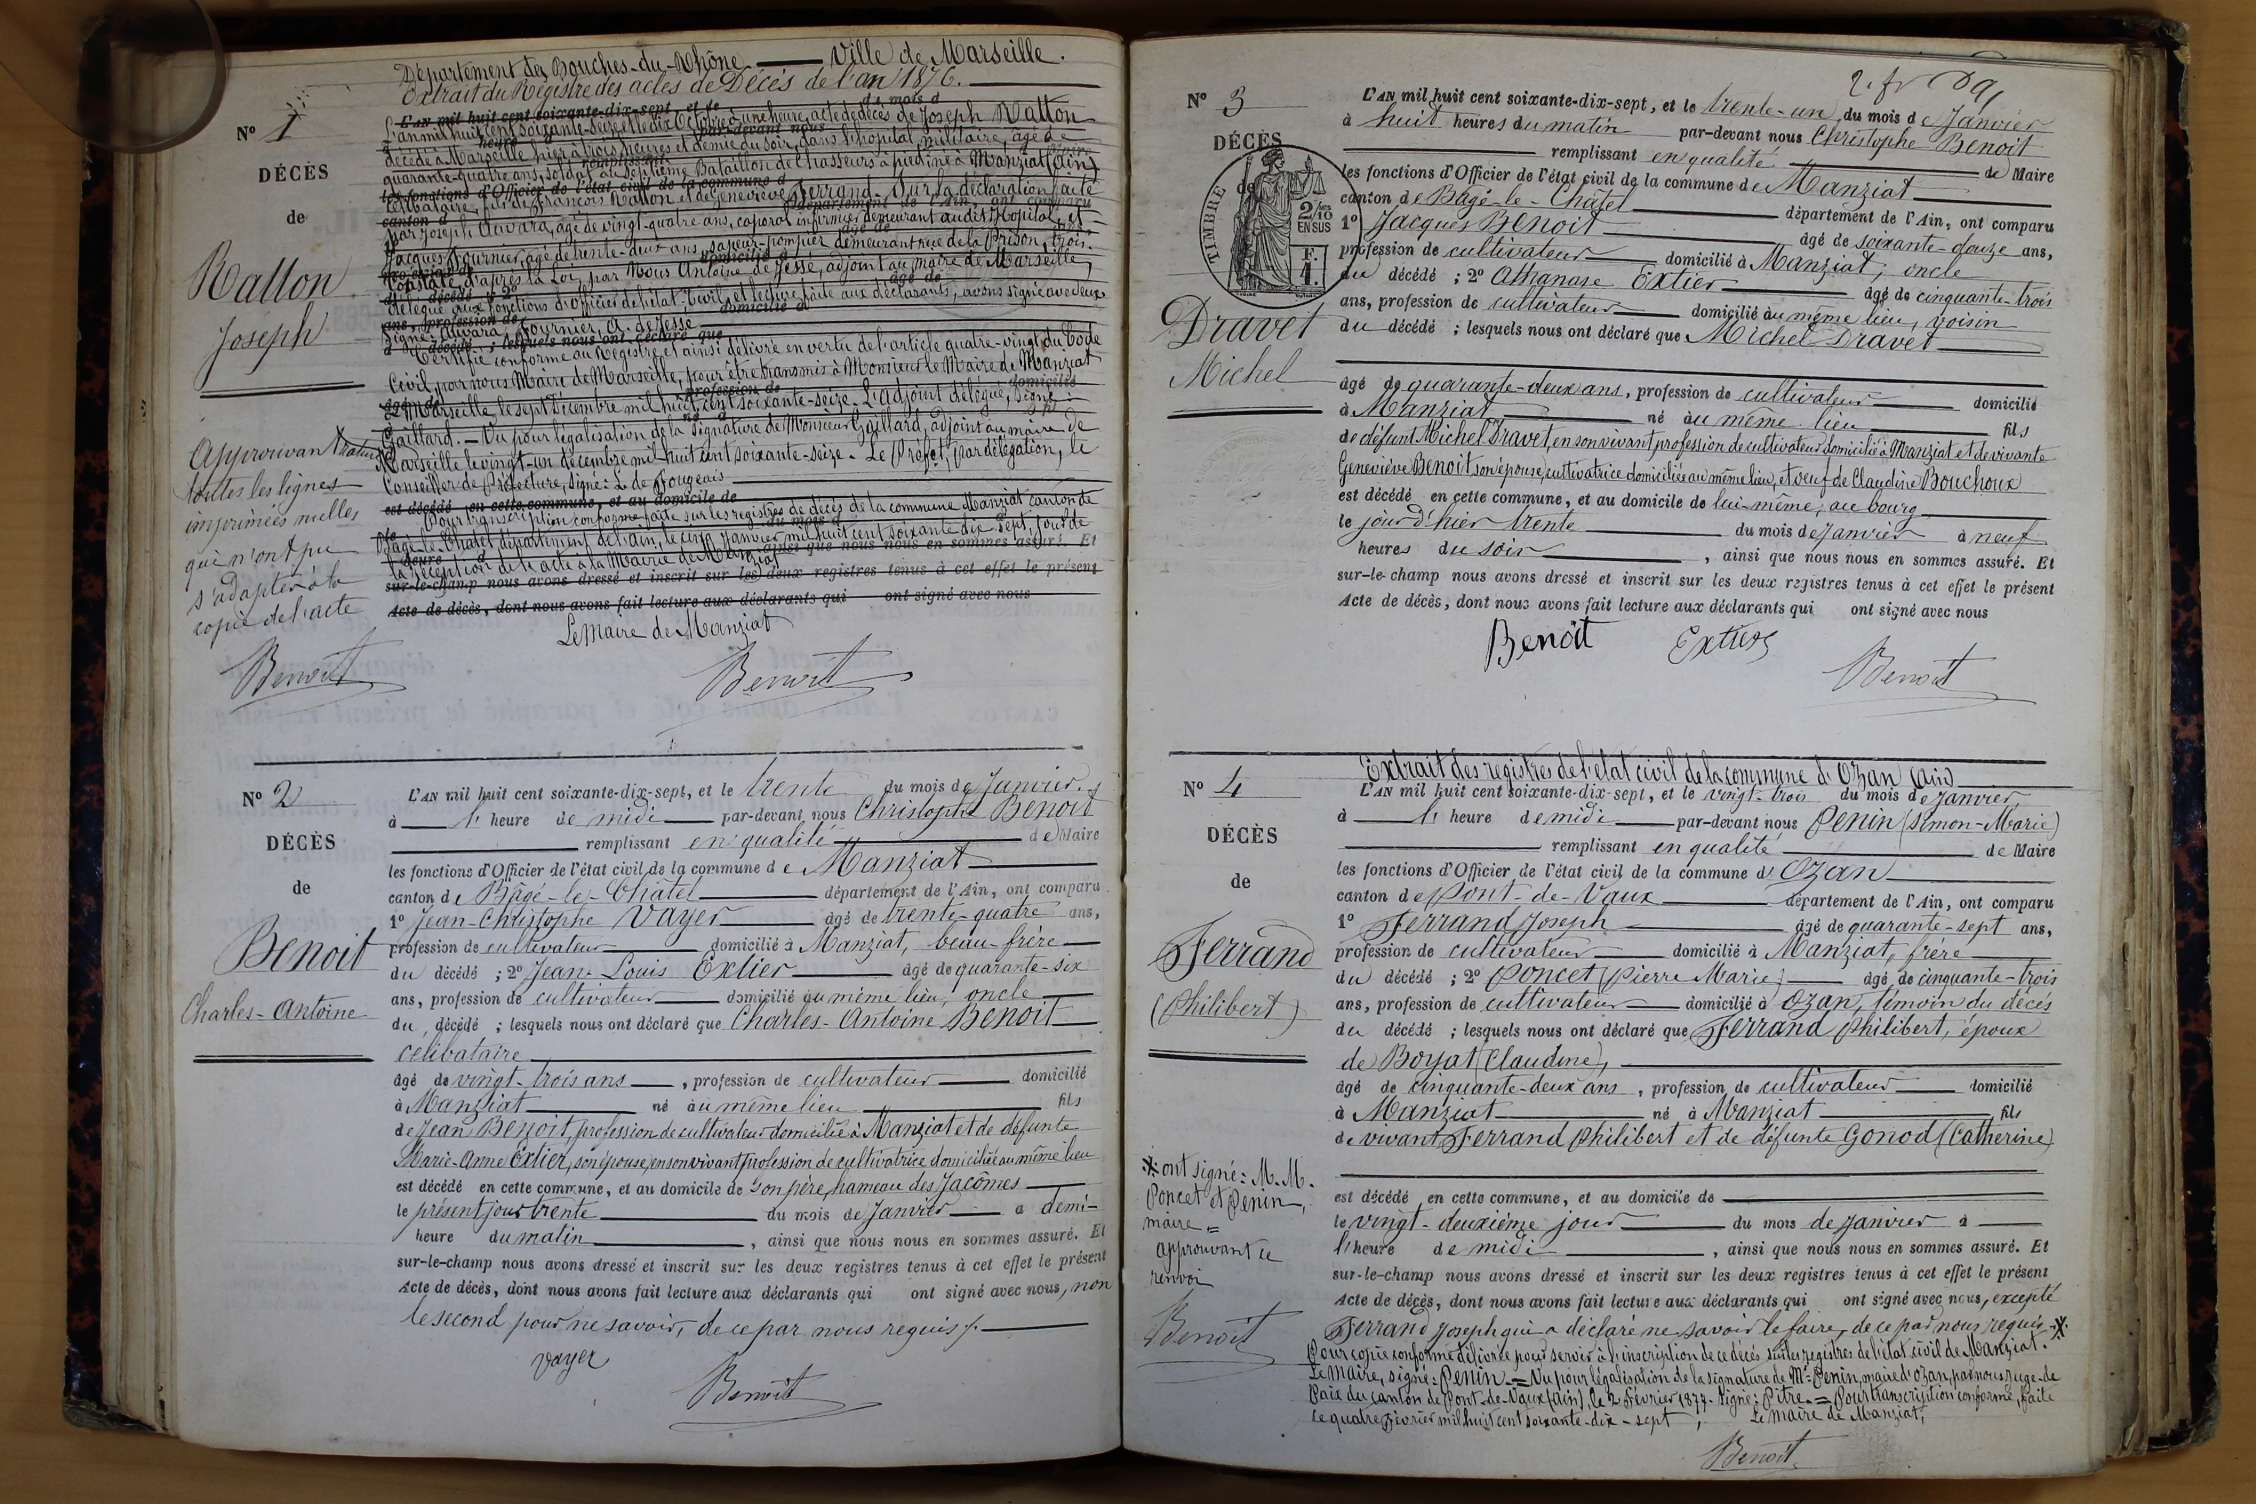 Département des Bouches-du-Rhône — Ville de Marseille.
Extrait du Registre des actes de Décès de l'an 1876.
N° 1
DÉCÈS
de
Rallon
Joseph
L'AN mil huit cent soixante-dix-sept, et le du mois d
L'an mil huit cent soixante-seize et le dix Octobre à une heure, acte de décès de Joseph Rallon
heure par-devant nous
décédé à Marseille hier à trois heures et demie du soir, dans l'hôpital militaire, âgé de
remplissant
quarante-quatre ans, soldat au Septième Bataillon de chasseurs à pied né à Manziat (Ain)
les fonctions d'Officier de l'état civil de la commune d
célibataire, fils de François Rallon et de Geneviève Ferrand. Sur la déclaration faite
canton d département de l'Ain, ont comparu
par Joseph Auvara, âgé de vingt-quatre ans, caporal infirmier demeurant audit Hôpital, et
âgé de ans,
Jacques Fournier, âgé de trente-deux ans, sapeur-pompier demeurant rue de la Prison, trois.
profession de domicilié à
Constaté, d'après la Loi, par Nous Antoine de Jessé, adjoint au maire de Marseille,
décédé ; 2° âgé de
délégué aux fonctions d'Officier de l'état-Civil, et lecture faite aux déclarants, avons signé avec eux
ans, profession de domicilié à
Signé: Auvara, Fournier, A. de Jessé
décédé ; lesquels nous ont déclaré que
Certifié conforme au Registre et ainsi délivré en vertu de l'article quatre-vingt du Code
Civil, par nous Maire de Marseille, pour être transmis à Monsieur le Maire de Manziat
profession de domicilié
Marseille, le sept Décembre mil huit cent soixante-seize. L'adjoint délégué, Signé:
Gaillard. — Vu pour légalisation de la signature de Monsieur Gaillard, adjoint au maire de
Marseille le vingt-un décembre mil huit cent soixante-seize. Le Préfet, par délégation, le
Conseiller de Préfecture, signé: L. de Fougeais
est décédé en cette commune, et au domicile de
Pour transcription conforme faite sur les registres de décès de la commune Manziat canton de
du mois d
Bâgé-le-Châtel département de l'Ain, le cinq Janvier mil huit cent soixante-dix-sept, jour de
heure ainsi que nous nous en sommes assuré. Et
la réception de l'acte à la Mairie de Manziat
sur-le-champ nous avons dressé et inscrit sur les deux registres tenus à cet effet le présent
Acte de décès, dont nous avons fait lecture aux déclarants qui ont signé avec nous
Le Maire de Manziat
Benoit
Approuvant
toutes les lignes
imprimées nulles
qui n'ont pu
s'adapter à la
copie de l'acte
Benoit
N° 2
DÉCÈS
de
Benoit
Charles-Antoine
L'AN mil huit cent soixante-dix-sept, et le trente du mois de Janvier
à 1 heure de midi par-devant nous Christophe Benoit
remplissant en qualité de Maire
les fonctions d'Officier de l'état civil de la commune de Manziat
canton de Bâgé-le-Châtel département de l'Ain, ont comparu
1° Jean-Christophe Vayer âgé de trente-quatre ans,
profession de cultivateur domicilié à Manziat, beau-frère
du décédé ; 2° Jean-Louis Extier âgé de quarante-six
ans, profession de cultivateur domicilié au même lieu, oncle
du décédé ; lesquels nous ont déclaré que Charles-Antoine Benoit
célibataire
âgé de vingt-trois ans, profession de cultivateur domicilié
à Manziat né au même lieu fils
de Jean Benoit, profession de cultivateur domicilié à Manziat et de défunte
Marie-Anne Extier, son épouse, en son vivant profession de cultivatrice domiciliée au même lieu
est décédé en cette commune, et au domicile de son père, hameau des Jacômes
le présent jour trente du mois de Janvier à demi-
heure du matin, ainsi que nous nous en sommes assuré. Et
sur-le-champ nous avons dressé et inscrit sur les deux registres tenus à cet effet le présent
Acte de décès, dont nous avons fait lecture aux déclarants qui ont signé avec nous, non
le second pour ne savoir, de ce par nous requis /.
Vayer
Benoit
2. fr
N° 3
DÉCÈS
de
TIMBRE
2/10
EN SUS
F.
1.
Dravet
Michel
L'AN mil huit cent soixante-dix-sept, et le trente-un du mois de Janvier
à huit heures du matin par-devant nous Christophe Benoit
remplissant en qualité de Maire
les fonctions d'Officier de l'état civil de la commune de Manziat
canton de Bâgé-le-Châtel département de l'Ain, ont comparu
1° Jacques Benoit âgé de soixante-douze ans,
profession de cultivateur domicilié à Manziat, oncle
du décédé ; 2° Athanase Extier âgé de cinquante-trois
ans, profession de cultivateur domicilié au même lieu, voisin
du décédé ; lesquels nous ont déclaré que Michel Dravet
âgé de quarante-deux ans, profession de cultivateur domicilié
à Manziat né au même lieu fils
de défunt Michel Dravet, en son vivant profession de cultivateur domicilié à Manziat et de vivante
Geneviève Benoit son épouse, cultivatrice domiciliée au même lieu, et veuf de Claudine Bouchoux
est décédé en cette commune, et au domicile de lui-même, au bourg
le jour d'hier trente du mois de Janvier à neuf
heures du soir, ainsi que nous nous en sommes assuré. Et
sur-le-champ nous avons dressé et inscrit sur les deux registres tenus à cet effet le présent
Acte de décès, dont nous avons fait lecture aux déclarants qui ont signé avec nous
Benoit Extier
Benoit
Extrait des registres de l'état civil de la commune d'Ozan (Ain)
N° 4
DÉCÈS
de
Ferrand
(Philibert)
L'AN mil huit cent soixante-dix-sept, et le vingt-trois du mois de Janvier
à 1 heure de midi par-devant nous Penin (Simon-Marie)
remplissant en qualité de Maire
les fonctions d'Officier de l'état civil de la commune d'Ozan
canton de Pont-de-Vaux département de l'Ain, ont comparu
1° Ferrand Joseph âgé de quarante-sept ans,
profession de cultivateur domicilié à Manziat, frère
du décédé ; 2° Poncet (Pierre Marie) âgé de cinquante-trois
ans, profession de cultivateur domicilié à Ozan, témoin du décès
du décédé ; lesquels nous ont déclaré que Ferrand Philibert, époux
de Boyat (Claudine),
âgé de cinquante-deux ans, profession de cultivateur domicilié
à Manziat né à Manziat fils
de vivant Ferrand Philibert et de défunte Gonod (Catherine)
est décédé en cette commune, et au domicile de
le vingt-deuxième jour du mois de Janvier à
1 heure de midi, ainsi que nous nous en sommes assuré. Et
sur-le-champ nous avons dressé et inscrit sur les deux registres tenus à cet effet le présent
Acte de décès, dont nous avons fait lecture aux déclarants qui ont signé avec nous, excepté
Ferrand Joseph qui a déclaré ne savoir le faire, de ce par nous requis ※
Pour copie conforme délivrée pour servir à l'inscription de ce décès sur les registres de l'état civil de Manziat.
Le Maire, signé: Penin = Vu pour légalisation de la signature de Mr Penin, maire d'Ozan, par nous Juge-de
Paix du canton de Pont-de-Vaux (Ain), le 2 Février 1877. Signé: Pitre = Pour transcription conforme, faite
le quatre Février mil huit cent soixante-dix-sept, Le Maire de Manziat,
Benoit
※ ont signé: M.M.
Poncet et Penin,
maire =
approuvant ce
renvoi
Benoit